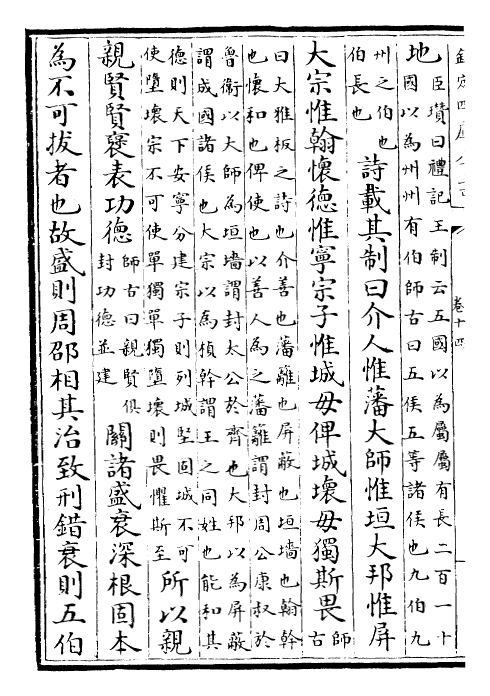 卷十四
地臣瓚曰禮記王制云五國以為屬屬有長二百一十
國以為州州有伯師古曰五侯五等諸侯也九伯九
州之伯也
伯長也
詩載其制曰介人惟藩大師惟垣大邦惟屏
大宗惟翰懷德惟寧宗子惟城毋俾城壞毋獨斯畏師
古
曰大雅板之詩也介善也藩籬也屏蔽也垣墻也翰幹
也懷和也俾使也以善人為之藩籬謂封周公康叔於
魯衛以大師為垣墻謂封太公於齊也大邦以為屏蔽
謂成國諸侯也大宗以為楨幹謂王之同姓也能和其
德則天下安寧分建宗子則列城堅固城不可
使墮壞宗不可使單獨單獨墮壞則畏懼斯至
所以親
親賢賢褒表功德
師古曰親賢俱
封功德並建
關諸盛衰深根固本
為不可拔者也故盛則周邵相其治致刑錯衰則五伯